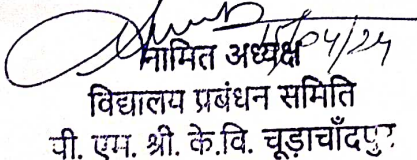 15/04/24
नामित अध्यक्ष
विद्यालय प्रबंधन समिति
पी. एम. श्री. के.वि. चूड़ाचाँदपुर